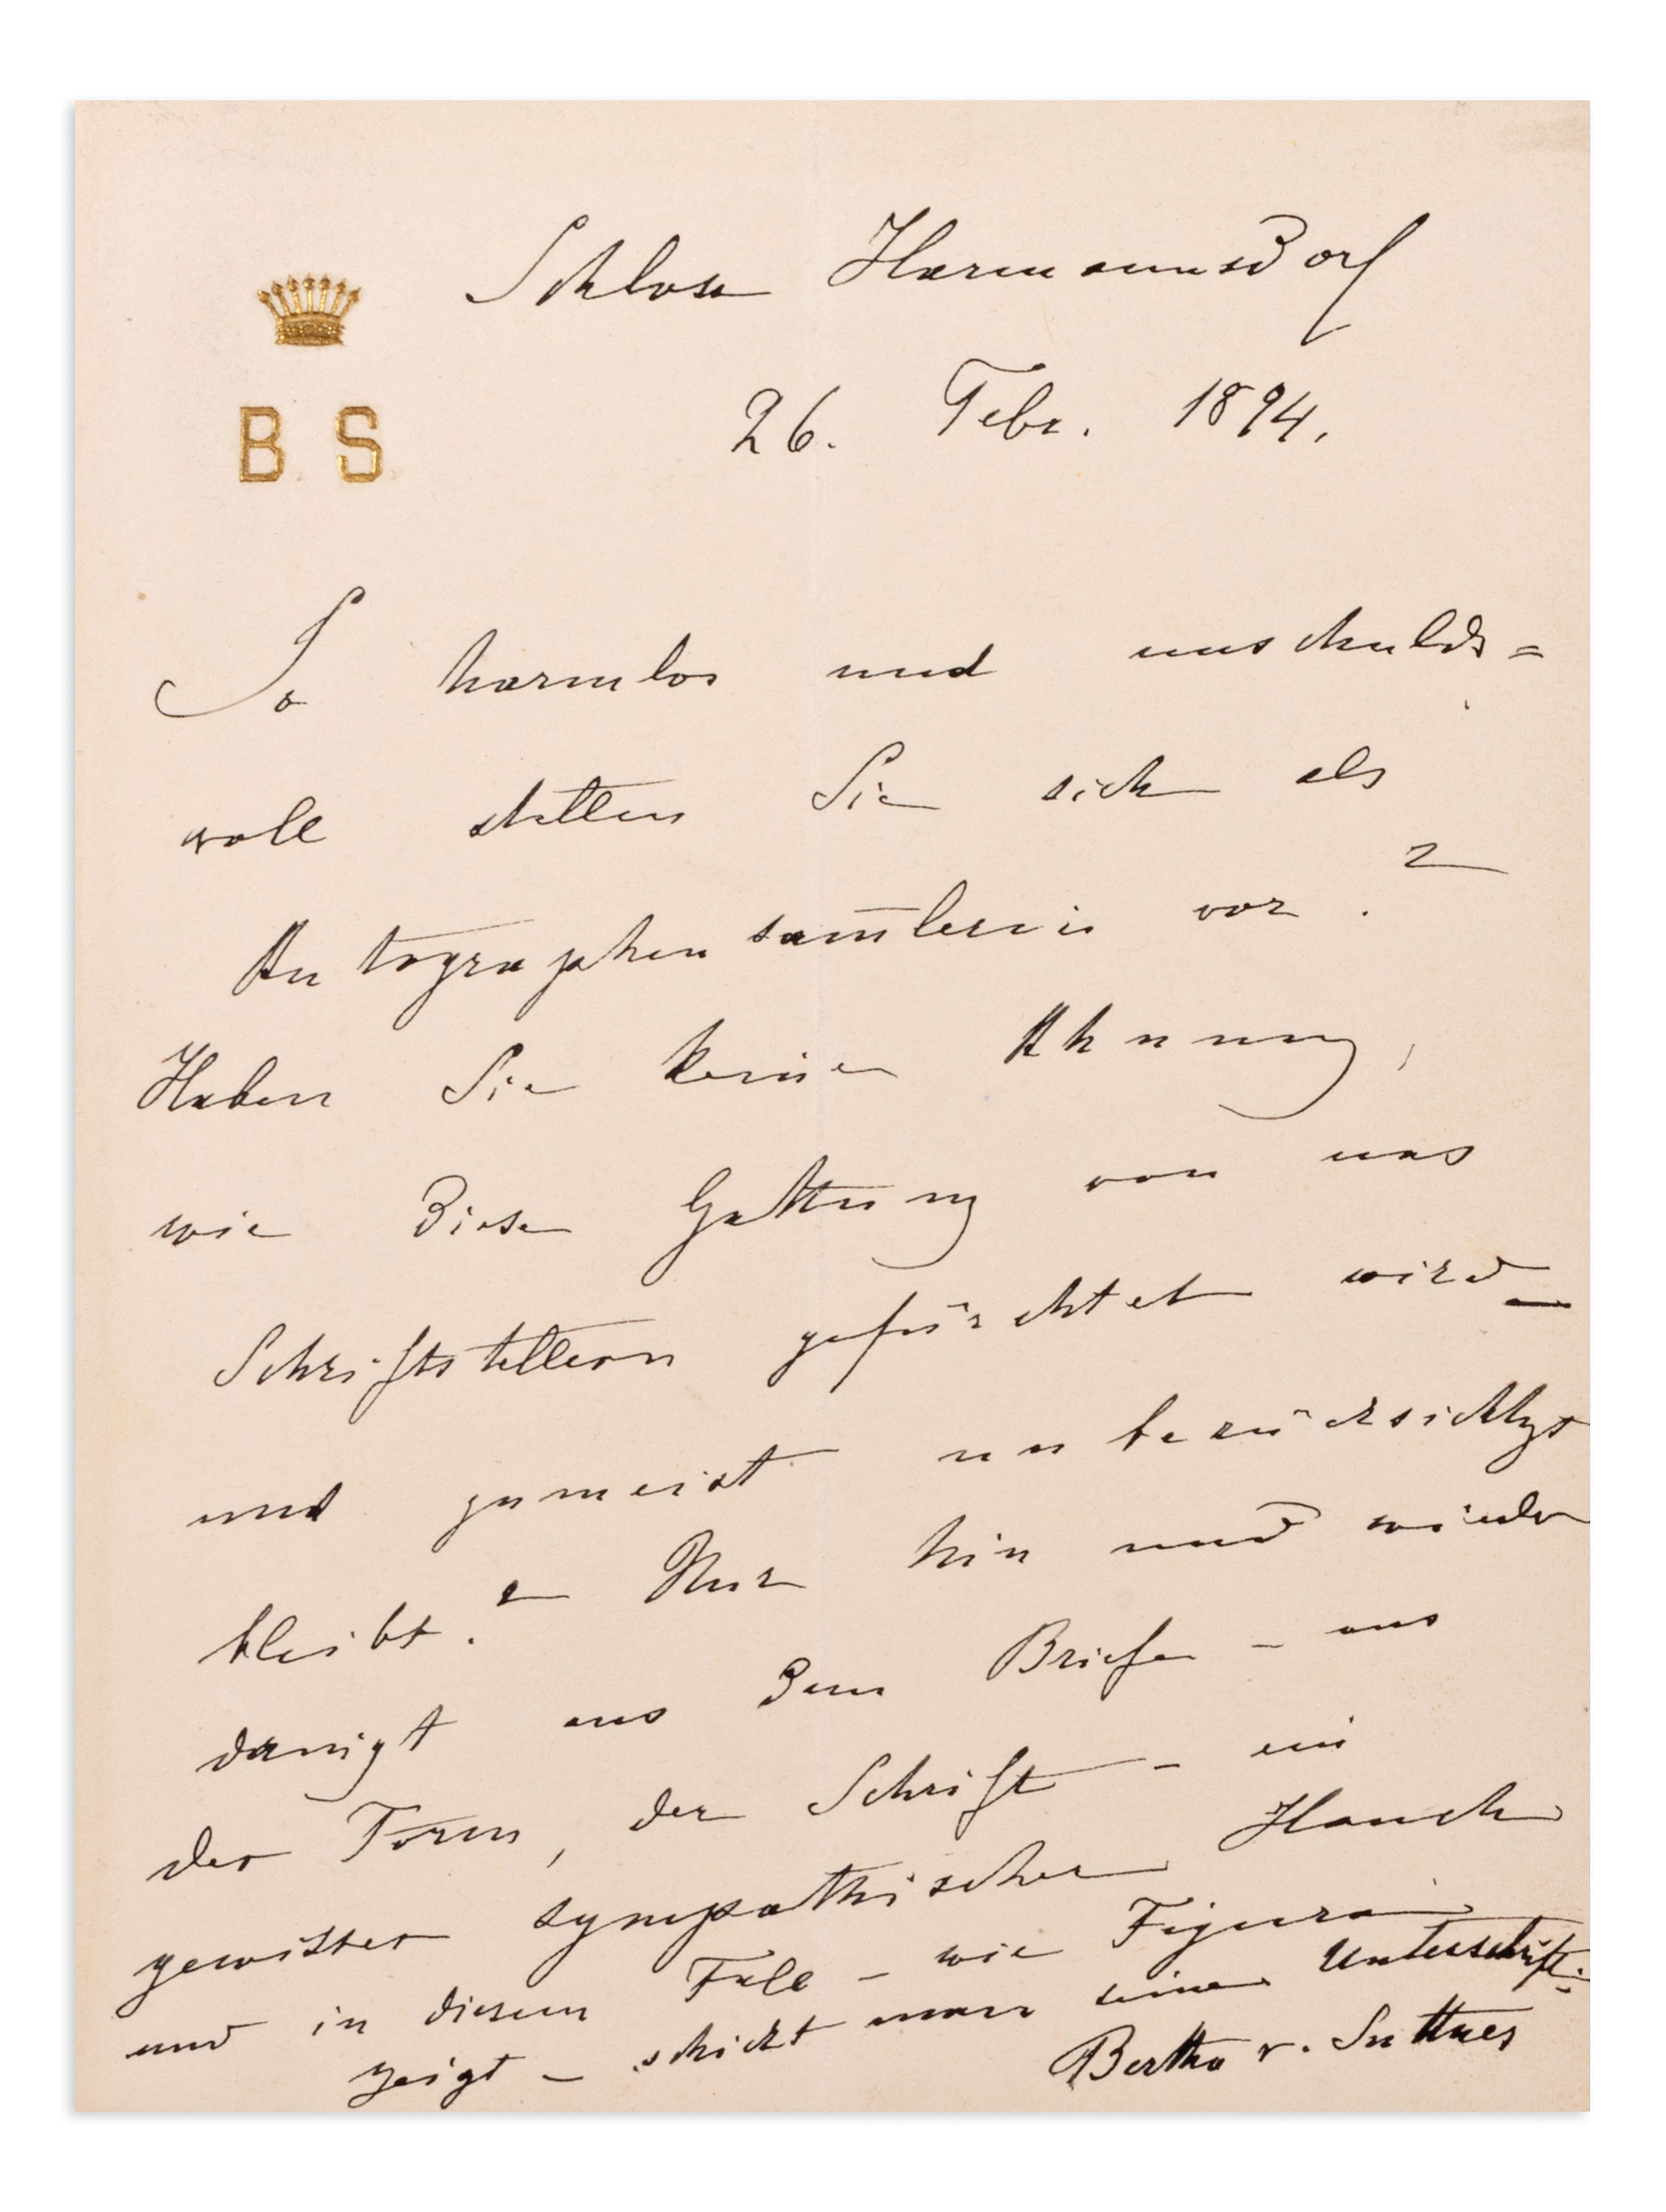 B S
Schloss Harmannsdorf
26. Febr. 1894.
So harmlos und unschulds=
voll stellen Sie sich als
Autographensam̄lerin vor. –
Haben Sie keine Ahnung,
wie diese Gattung von uns
Schriftstellern gefürchtet wird –
und zumeist unberücksichtigt
bleibt. – Nur hin und wieder
dringt aus dem Briefe – aus
der Form, der Schrift – ein
gewisser sympathischer Hauch
und in diesem Fall – wie Figura
zeigt – schickt man seine Unterschrift:
Bertha v. Suttner